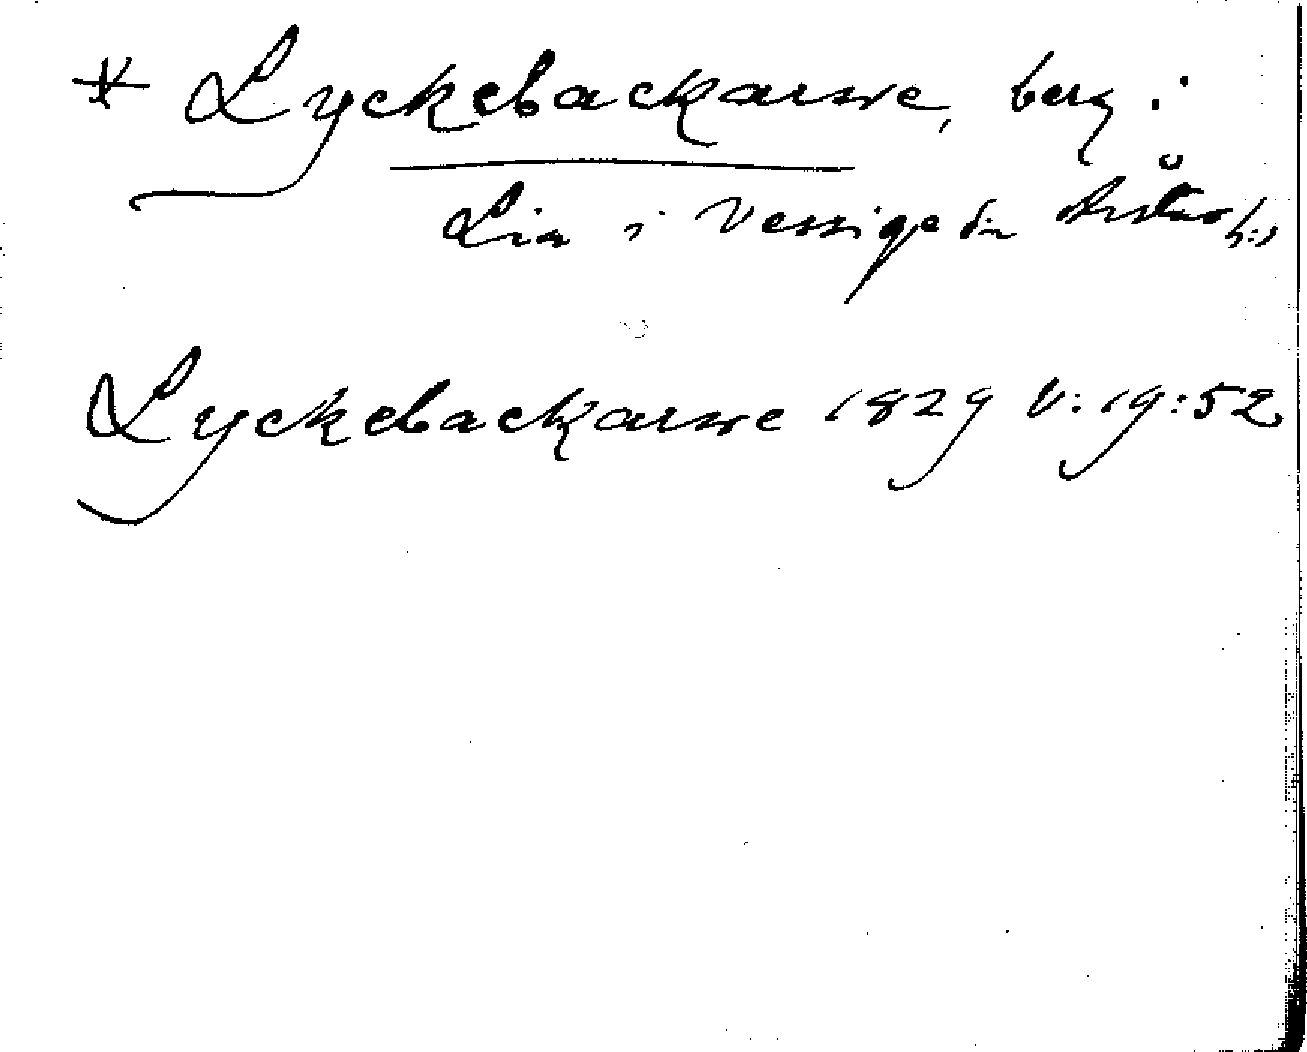 * Lyckebackarne, berg i
Lia i Vessige sn Årstads h:d
Lyckebackarne 1829 V:19:52